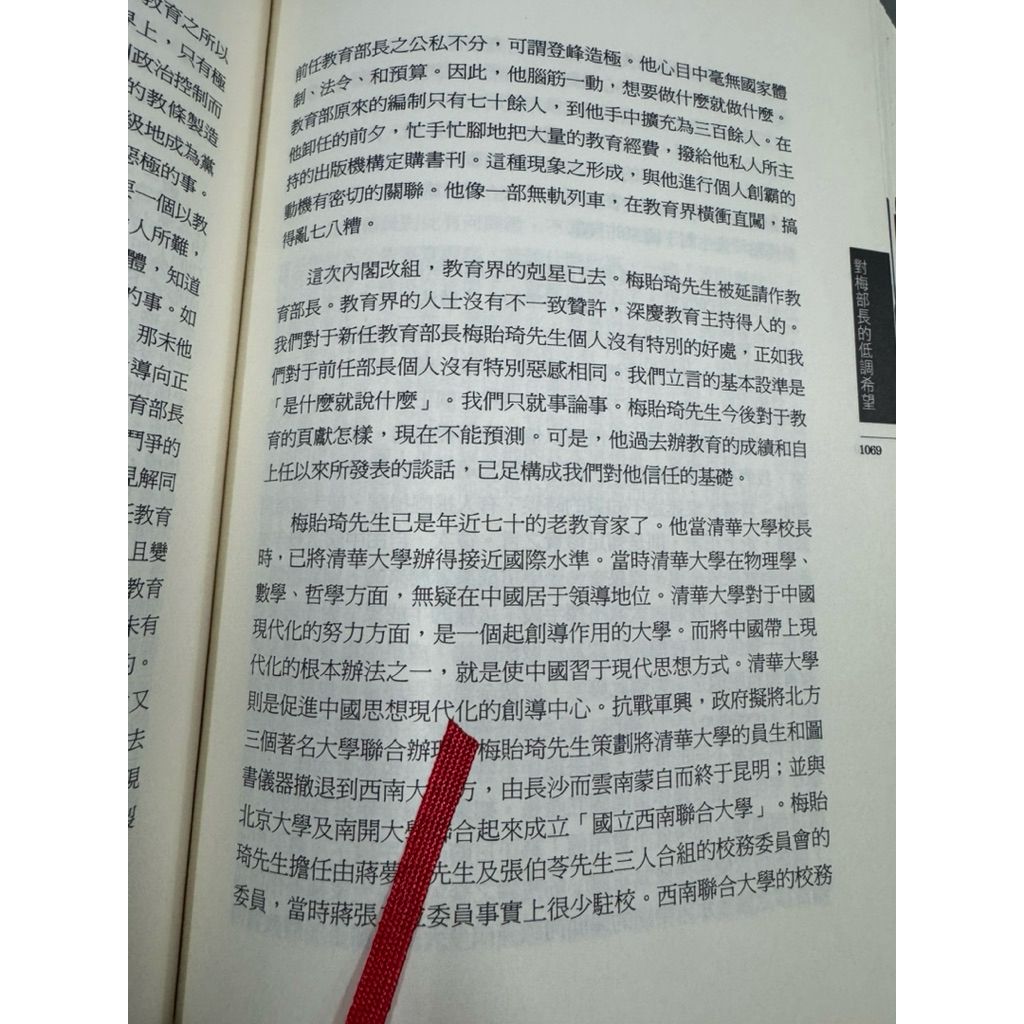 教育之所以
界上，只有極
政治控制而
的教條製造
級地成為黨
惡極的事。
一個以教
人所難，
體，知道
的事。如
那末他
導向正
育部長
鬥爭的
見解同
任教育
且變
教育
未有
又
去
前任教育部長之公私不分，可謂登峰造極。他心目中毫無國家體
制、法令、和預算。因此，他腦筋一動，想要做什麼就做什麼。
教育部原來的編制只有七十餘人，到他手中擴充為三百餘人。在
他卸任的前夕，忙手忙腳地把大量的教育經費，撥給他私人所主
持的出版機構定購書刊。這種現象之形成，與他進行個人創霸的
動機有密切的關聯。他像一部無軌列車，在教育界橫衝直闖，搞
得亂七八糟。
這次內閣改組，教育界的剋星已去。梅貽琦先生被延請作教
育部長。教育界的人士沒有不一致贊許，深慶教育主持得人的。
我們對于新任教育部長梅貽琦先生個人沒有特別的好處，正如我
們對于前任部長個人沒有特別惡感相同。我們立言的基本設準是
「是什麼就說什麼」。我們只就事論事。梅貽琦先生今後對于教
育的貢獻怎樣，現在不能預測。可是，他過去辦教育的成績和自
上任以來所發表的談話，已足構成我們對他信任的基礎。
梅貽琦先生已是年近七十的老教育家了。他當清華大學校長
時，已將清華大學辦得接近國際水準。當時清華大學在物理學、
數學、哲學方面，無疑在中國居于領導地位。清華大學對于中國
現代化的努力方面，是一個起創導作用的大學。而將中國帶上現
代化的根本辦法之一，就是使中國習于現代思想方式。清華大學
則是促進中國思想現代化的創導中心。抗戰軍興，政府擬將北方
三個著名大學聯合辦 梅貽琦先生策劃將清華大學的員生和圖
書儀器撤退到西南大 方，由長沙而雲南蒙自而終于昆明；並與
北京大學及南開大 聯合起來成立「國立西南聯合大學」。梅貽
琦先生擔任由蔣夢 先生及張伯苓先生三人合組的校務委員會的
委員，當時蔣張 委員事實上很少駐校。西南聯合大學的校務
對梅部長的低調希望
1069